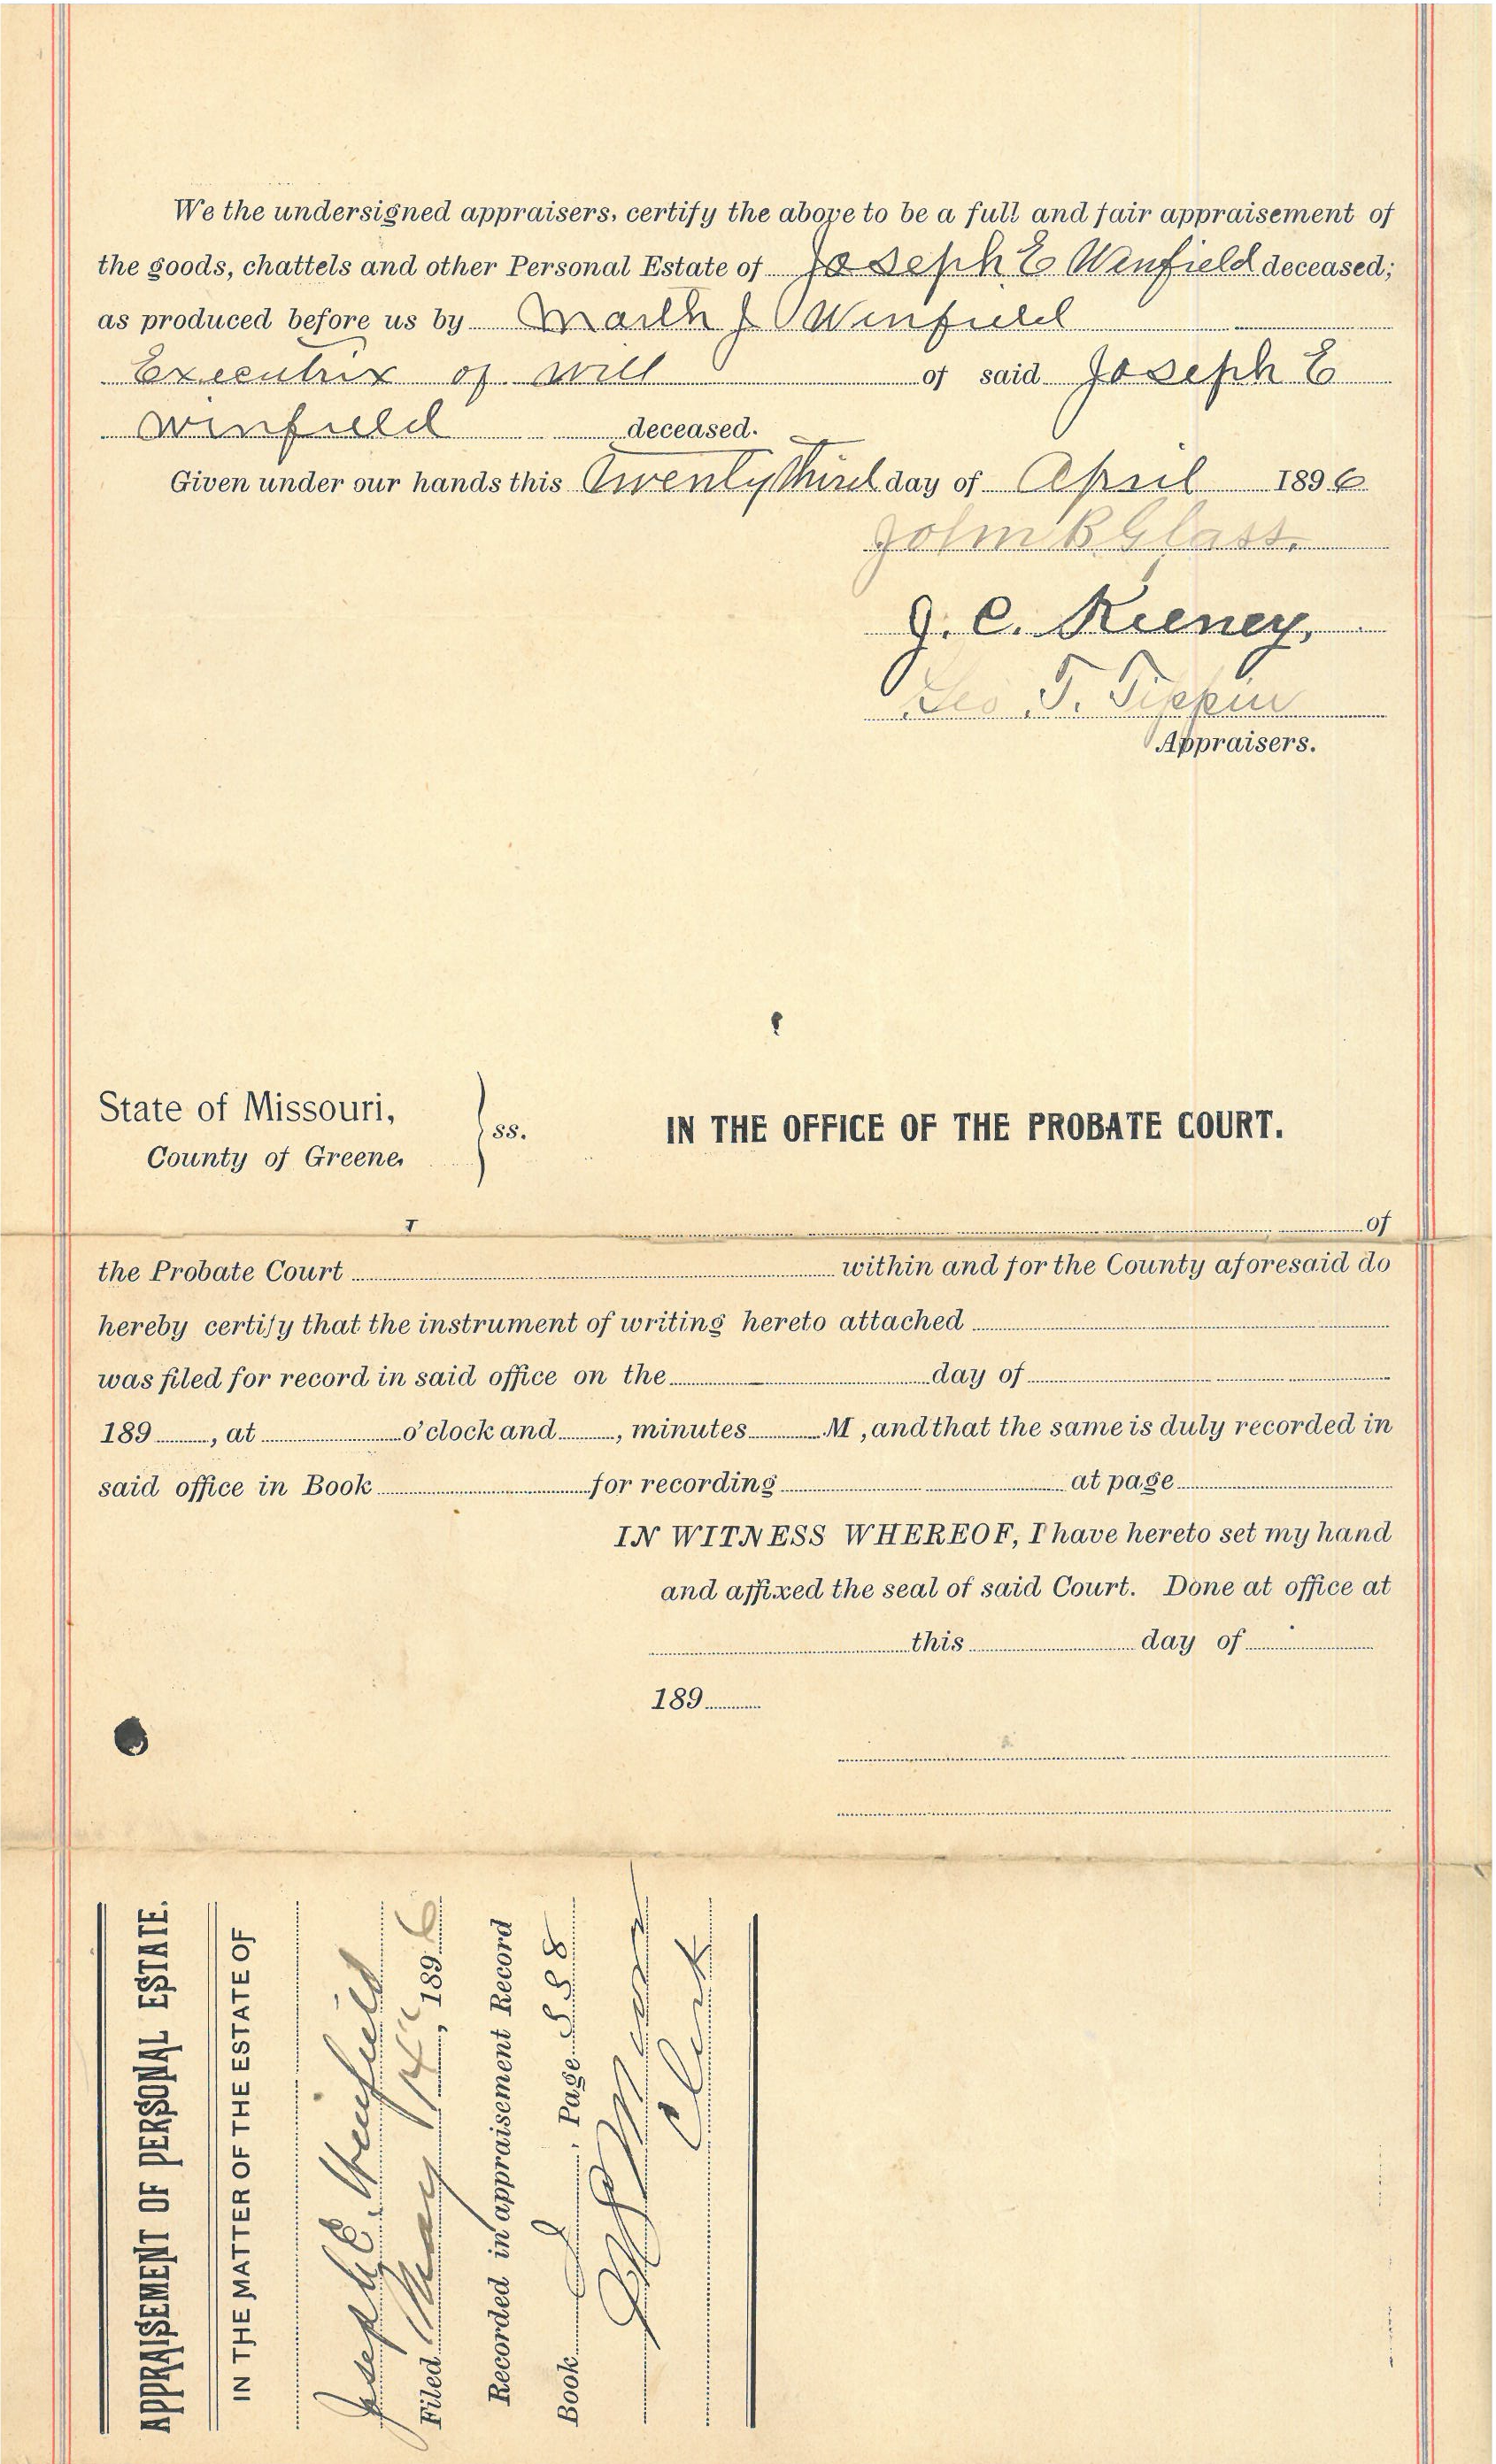 We the undersigned appraisers, certify the above to be a full and fair appraisement of
the goods, chattels and other Personal Estate of Joseph E Winfield deceased;
as produced before us by Winfield
Executrix of will of said Joseph E
Winfield deceased.
Given under our hands this Twenty Third day of April 1896
John B Glass.
J. C. Rieney,
Geo T. Tippin
Appraisers.
State of Missouri,
County of Greene,
ss.
IN THE OFFICE OF THE PROBATE COURT.
I of
the Probate Court within and for the County aforesaid do
hereby certify that the instrument of writing hereto attached
was filed for record in said office on the day of
189 , at o'clock and , minutes M , and that the same is duly recorded in
said office in Book for recording at page
IN WITNESS WHEREOF, I have hereto set my hand
and affixed the seal of said Court. Done at office at
this day of
189
APPRAISEMENT OF PERSONAL ESTATE.
IN THE MATTER OF THE ESTATE OF
Joseph E. Winfield
Filed May , 1896
Recorded in appraisement Record
Book , Page 558
Clerk